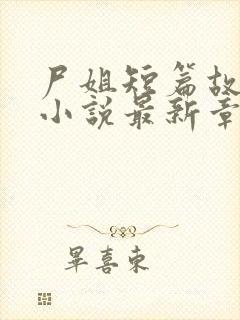 尸姐短篇故
小说最新章
毕喜东